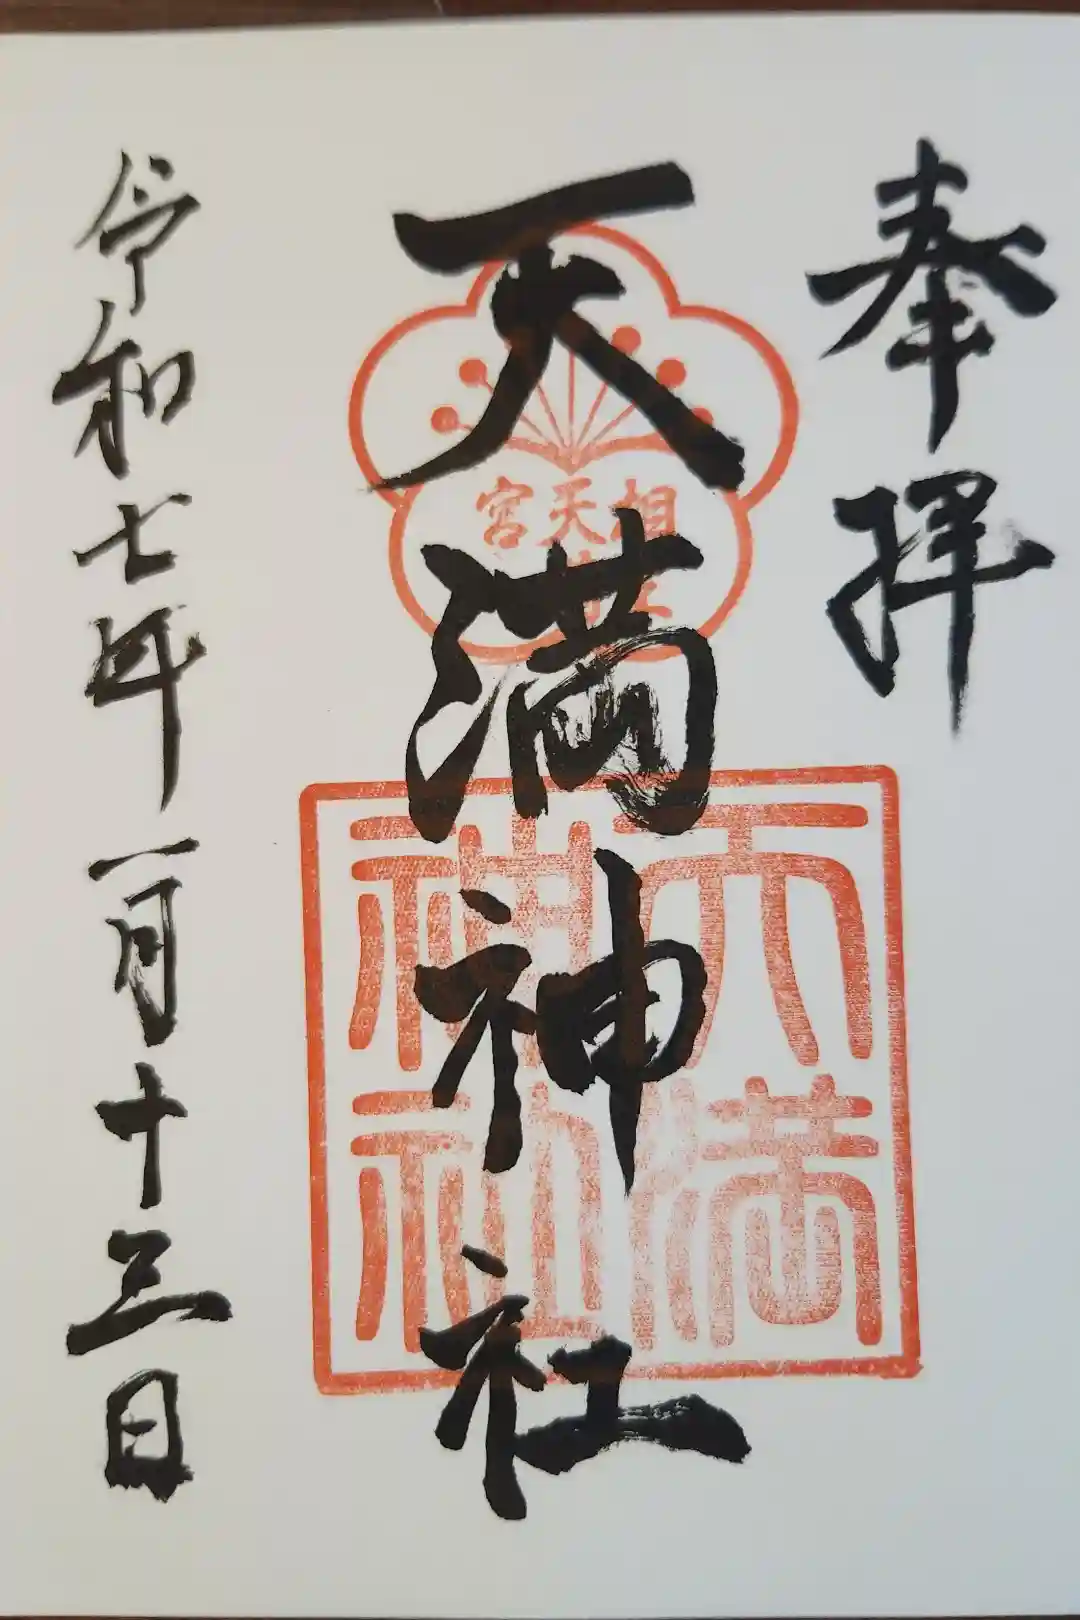 奉拝
天満神社
相天宮
天満神社
令和七年一月十三日